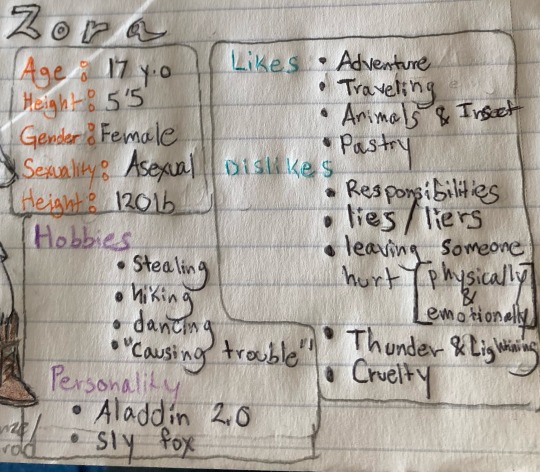 Zora
Age: 17 y.o
Height: 5'5
Gender: Female
Sexuality: Asexual
Height: 120lb
Likes
• Adventure
• Traveling
• Animals & Insect
• Pastry
Dislikes
• Responsibilities
• lies / liers
• leaving someone
hurt [physically
&
emotionally]
• Thunder & Lightning
• Cruelty
Hobbies
• Stealing
• hiking
• dancing
• "Causing trouble"
Personality
• Aladdin 2.0
• sly fox